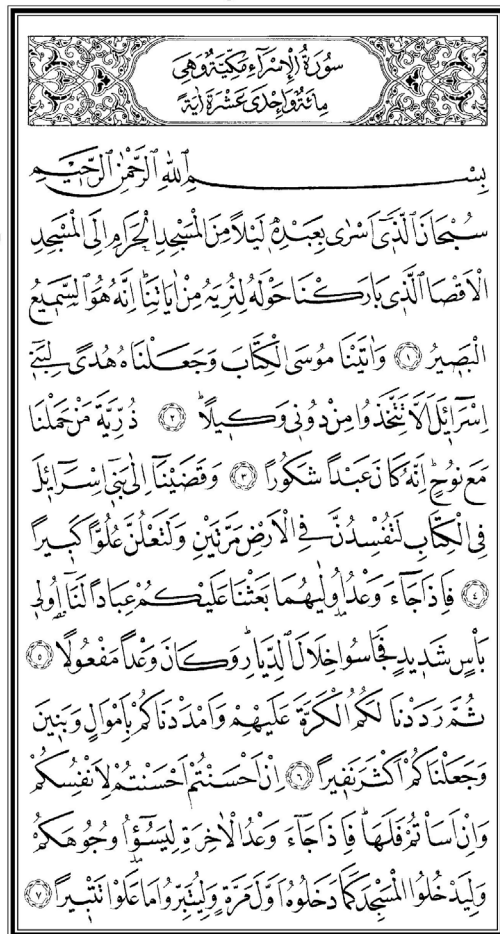 سُورَةُ الْإِسْرَٓاءِ مَكِّيَّةٌ وَهِيَ
مِائَةٌ وَاِحْدٰى عَشْرَةَ اٰيَةً
بِسْمِ اللّٰهِ الرَّحْمٰنِ الرَّح۪يمِ
سُبْحَانَ الَّذ۪ٓي اَسْرٰى بِعَبْدِه۪ لَيْلًا مِنَ الْمَسْجِدِ الْحَرَامِ اِلَى الْمَسْجِدِ
الْاَقْصَا الَّذ۪ي بَارَكْنَا حَوْلَهُ لِنُرِيَهُ مِنْ اٰيَاتِنَاۜ اِنَّهُ هُوَ السَّم۪يعُ
الْبَص۪يرُ ﴿١﴾ وَاٰتَيْنَا مُوسَى الْكِتَابَ وَجَعَلْنَاهُ هُدًى لِبَن۪ٓي
اِسْرَٓائ۪لَ اَلَّا تَتَّخِذُوا مِنْ دُون۪ي وَك۪يلًاۜ ﴿٢﴾ ذُرِّيَّةَ مَنْ حَمَلْنَا
مَعَ نُوحٍۜ اِنَّهُ كَانَ عَبْدًا شَكُورًا ﴿٣﴾ وَقَضَيْنَٓا اِلٰى بَن۪ٓي اِسْرَٓائ۪لَ
فِي الْكِتَابِ لَتُفْسِدُنَّ فِي الْاَرْضِ مَرَّتَيْنِ وَلَتَعْلُنَّ عُلُوًّا كَب۪يرًا
﴿٤﴾ فَاِذَا جَٓاءَ وَعْدُ اُو۫لٰيهُمَا بَعَثْنَا عَلَيْكُمْ عِبَادًا لَنَٓا اُو۬ل۪ي
بَأْسٍ شَد۪يدٍ فَجَاسُوا خِلَالَ الدِّيَارِۜ وَكَانَ وَعْدًا مَفْعُولًا ﴿٥﴾
ثُمَّ رَدَدْنَا لَكُمُ الْكَرَّةَ عَلَيْهِمْ وَاَمْدَدْنَاكُمْ بِاَمْوَالٍ وَبَن۪ينَ
وَجَعَلْنَاكُمْ اَكْثَرَ نَف۪يرًا ﴿٦﴾ اِنْ اَحْسَنْتُمْ اَحْسَنْتُمْ لِاَنْفُسِكُمْ
وَاِنْ اَسَأْتُمْ فَلَهَاۜ فَاِذَا جَٓاءَ وَعْدُ الْاٰخِرَةِ لِيَسُٓؤُ۫ا وُجُوهَكُمْ
وَلِيَدْخُلُوا الْمَسْجِدَ كَمَا دَخَلُوهُ اَوَّلَ مَرَّةٍ وَلِيُتَبِّرُوا مَا عَلَوْا تَتْب۪يرًا ﴿٧﴾